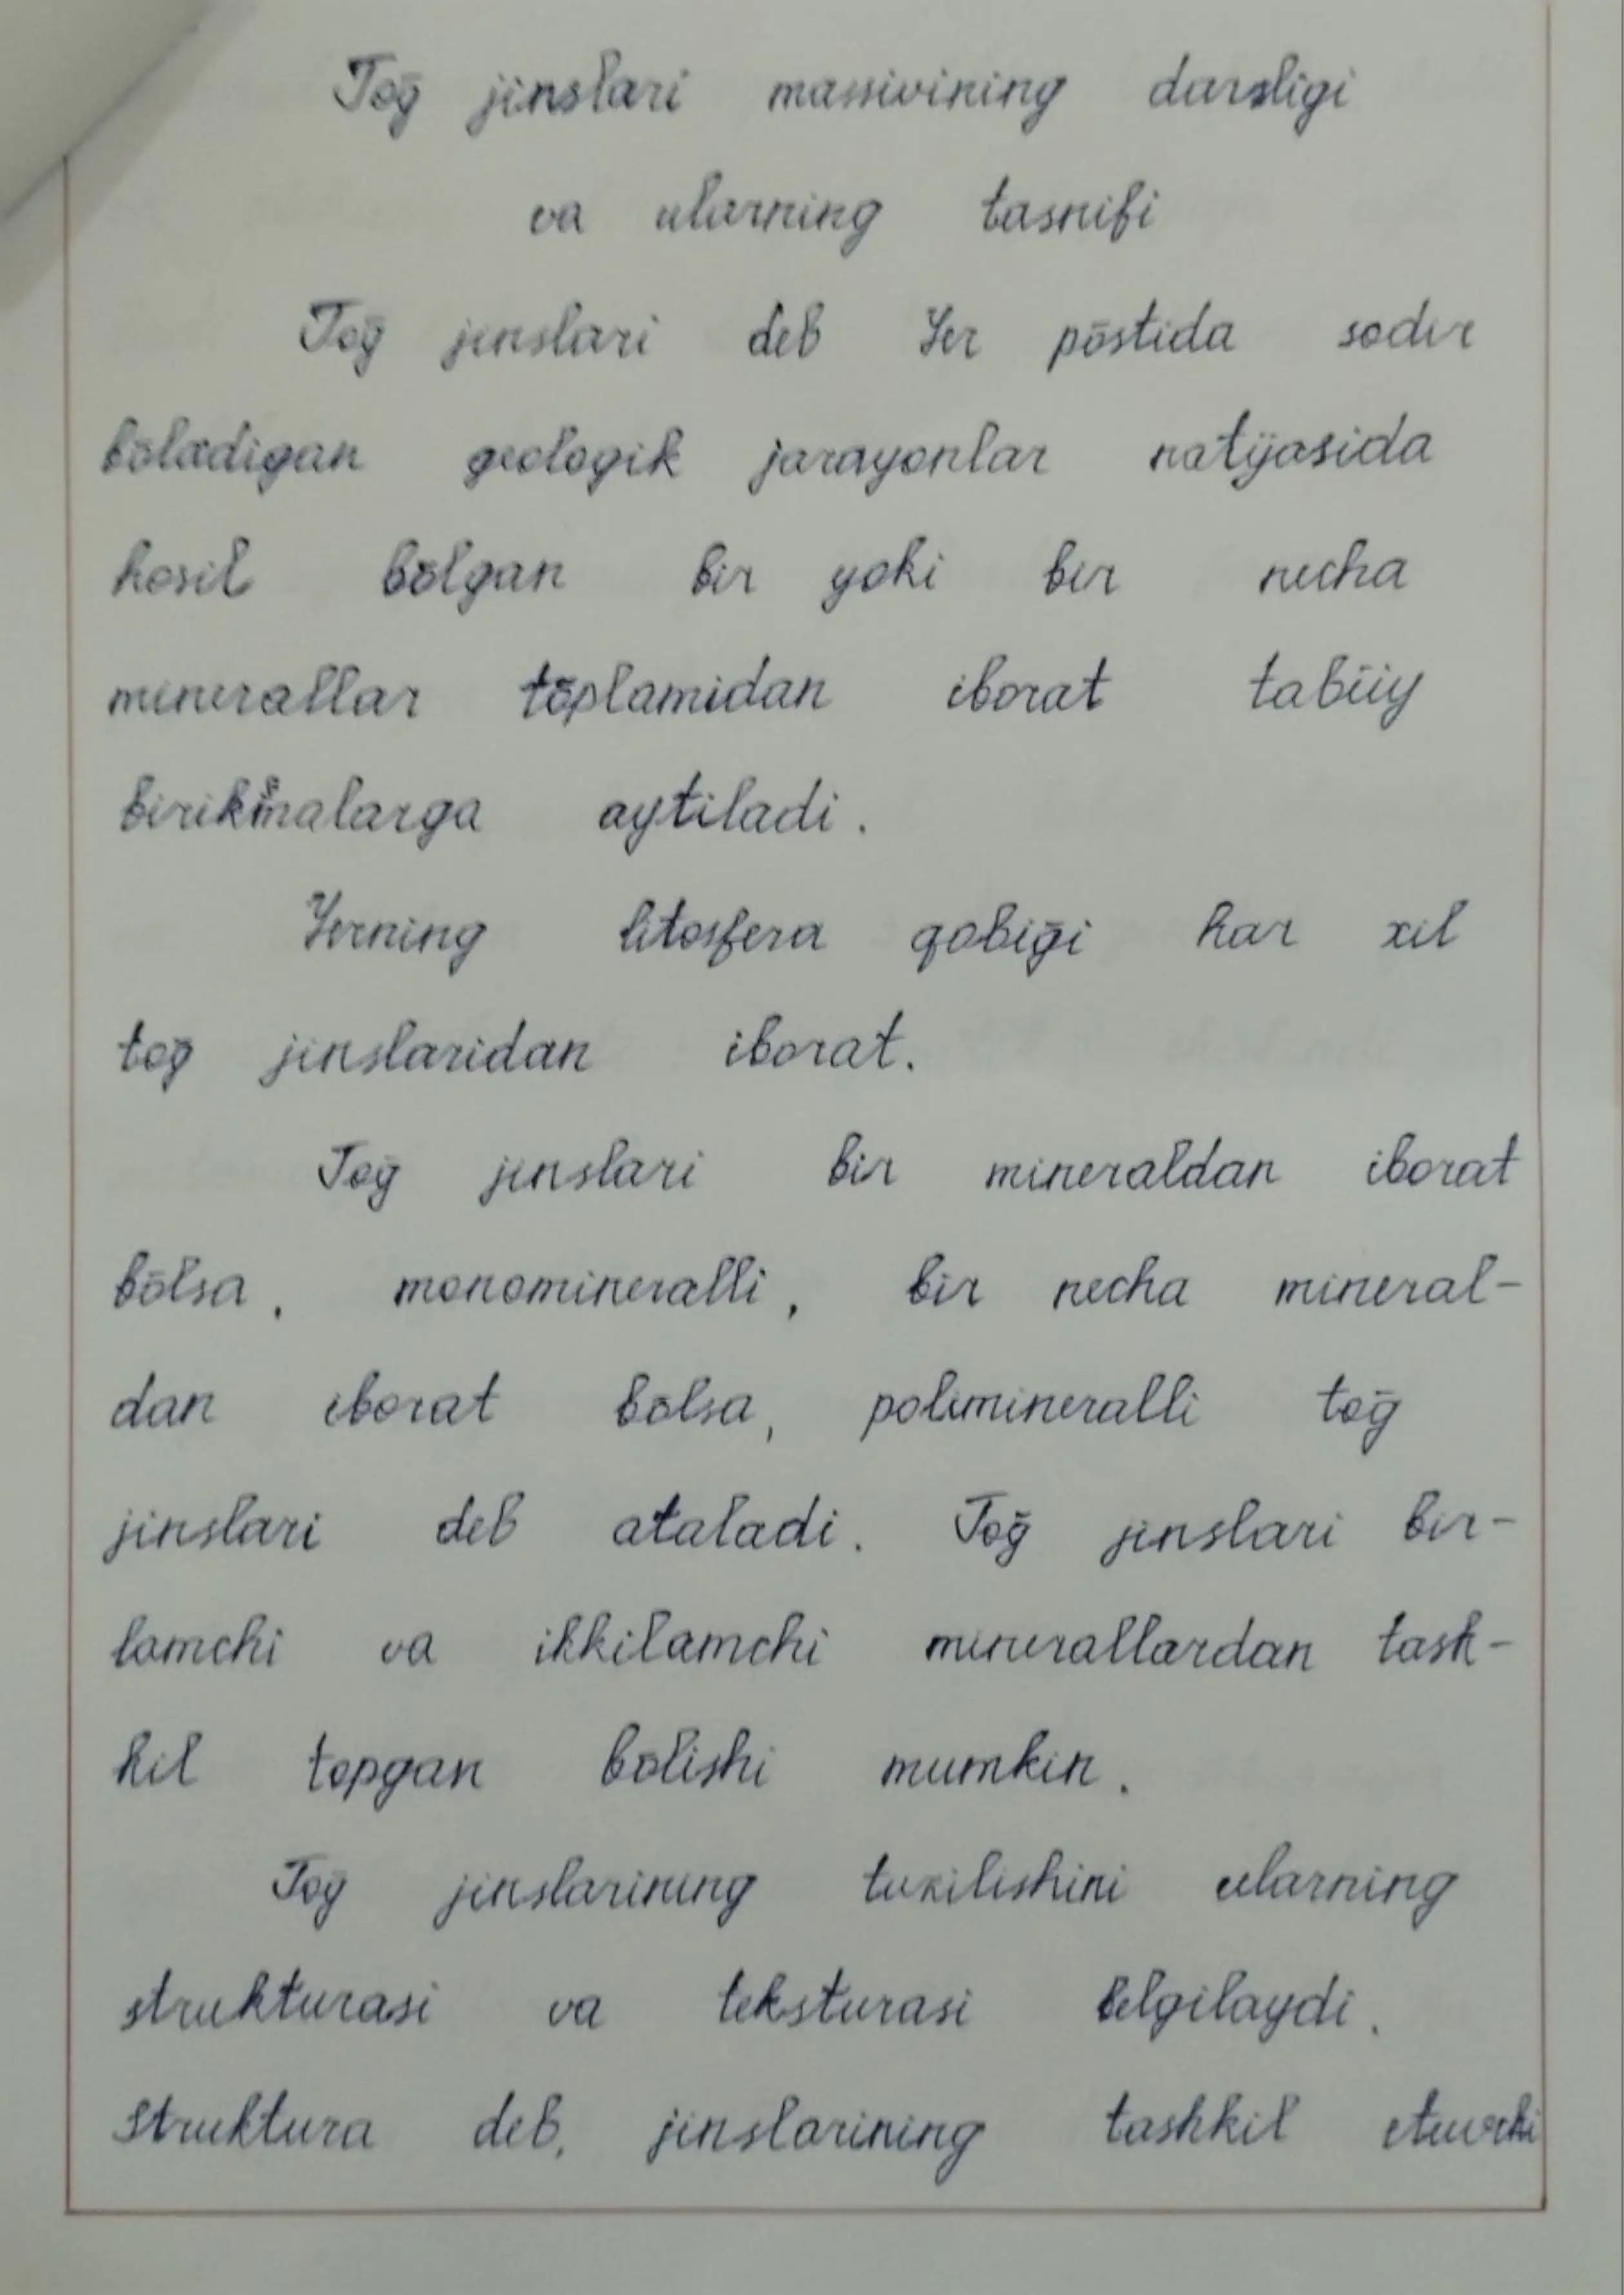 Toḡ jinslari massivining darzligi
va ularning tasnifi
Toḡ jinslari deb Yer pōstida sodir
bōladigan geologik jarayonlar natijasida
hosil bōlgan bir yoki bir necha
minerallar tōplamidan iborat tabiiy
birikmalarga aytiladi.
Yerning litosfera qobiḡi har xil
toḡ jinslaridan iborat.
Toḡ jinslari bir mineraldan iborat
bōlsa, monomineralli, bir necha mineral-
dan iborat bōlsa, polimineralli toḡ
jinslari deb ataladi. Toḡ jinslari bir-
lamchi va ikkilamchi minerallardan tash-
kil topgan bōlishi mumkin.
Toḡ jinslarining tuzilishini ularning
strukturasi va teksturasi belgilaydi.
Struktura deb, jinslarining tashkil etuvchi